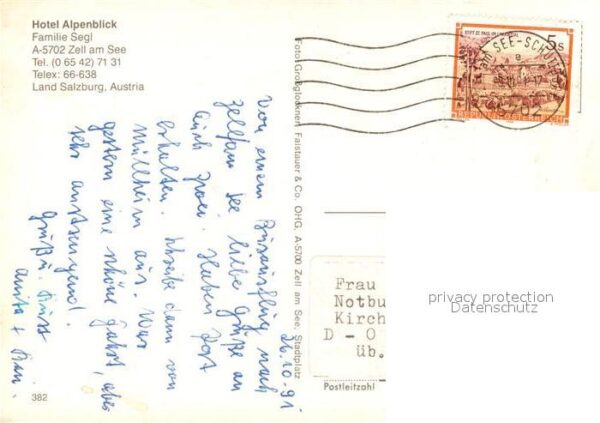 Hotel Alpenblick
Familie Segl
A-5702 Zell am See
Tel. (0 65 42) 71 31
Telex: 66-638
Land Salzburg, Austria
382
26.10.91
Von einem Busausflug nach
Zell am See liebe Grüße an
Euch zwei. Haben Post
erhalten. Schreibe dann von
Müllheim aus. War
gestern eine schöne Fahrt, aber
sehr anstrengend.
Gruß u. Kuss
Anita +
Foto: Großglockner, Falstauer & Co. OHG, A-5700 Zell am See, Stadtplatz
5s
STIFT ST. PAUL IM LAVANTTAL
REPUBLIK ÖSTERREICH
am SEE-SCHÜTT
Frau
Notbu
Kirch
D - O
üb.
Postleitzahl
privacy protection
Datenschutz